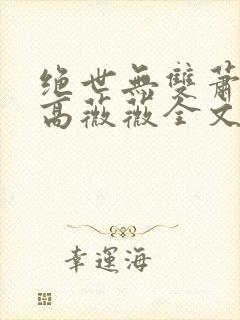 绝世無雙蕭
高薇薇全文
幸運海